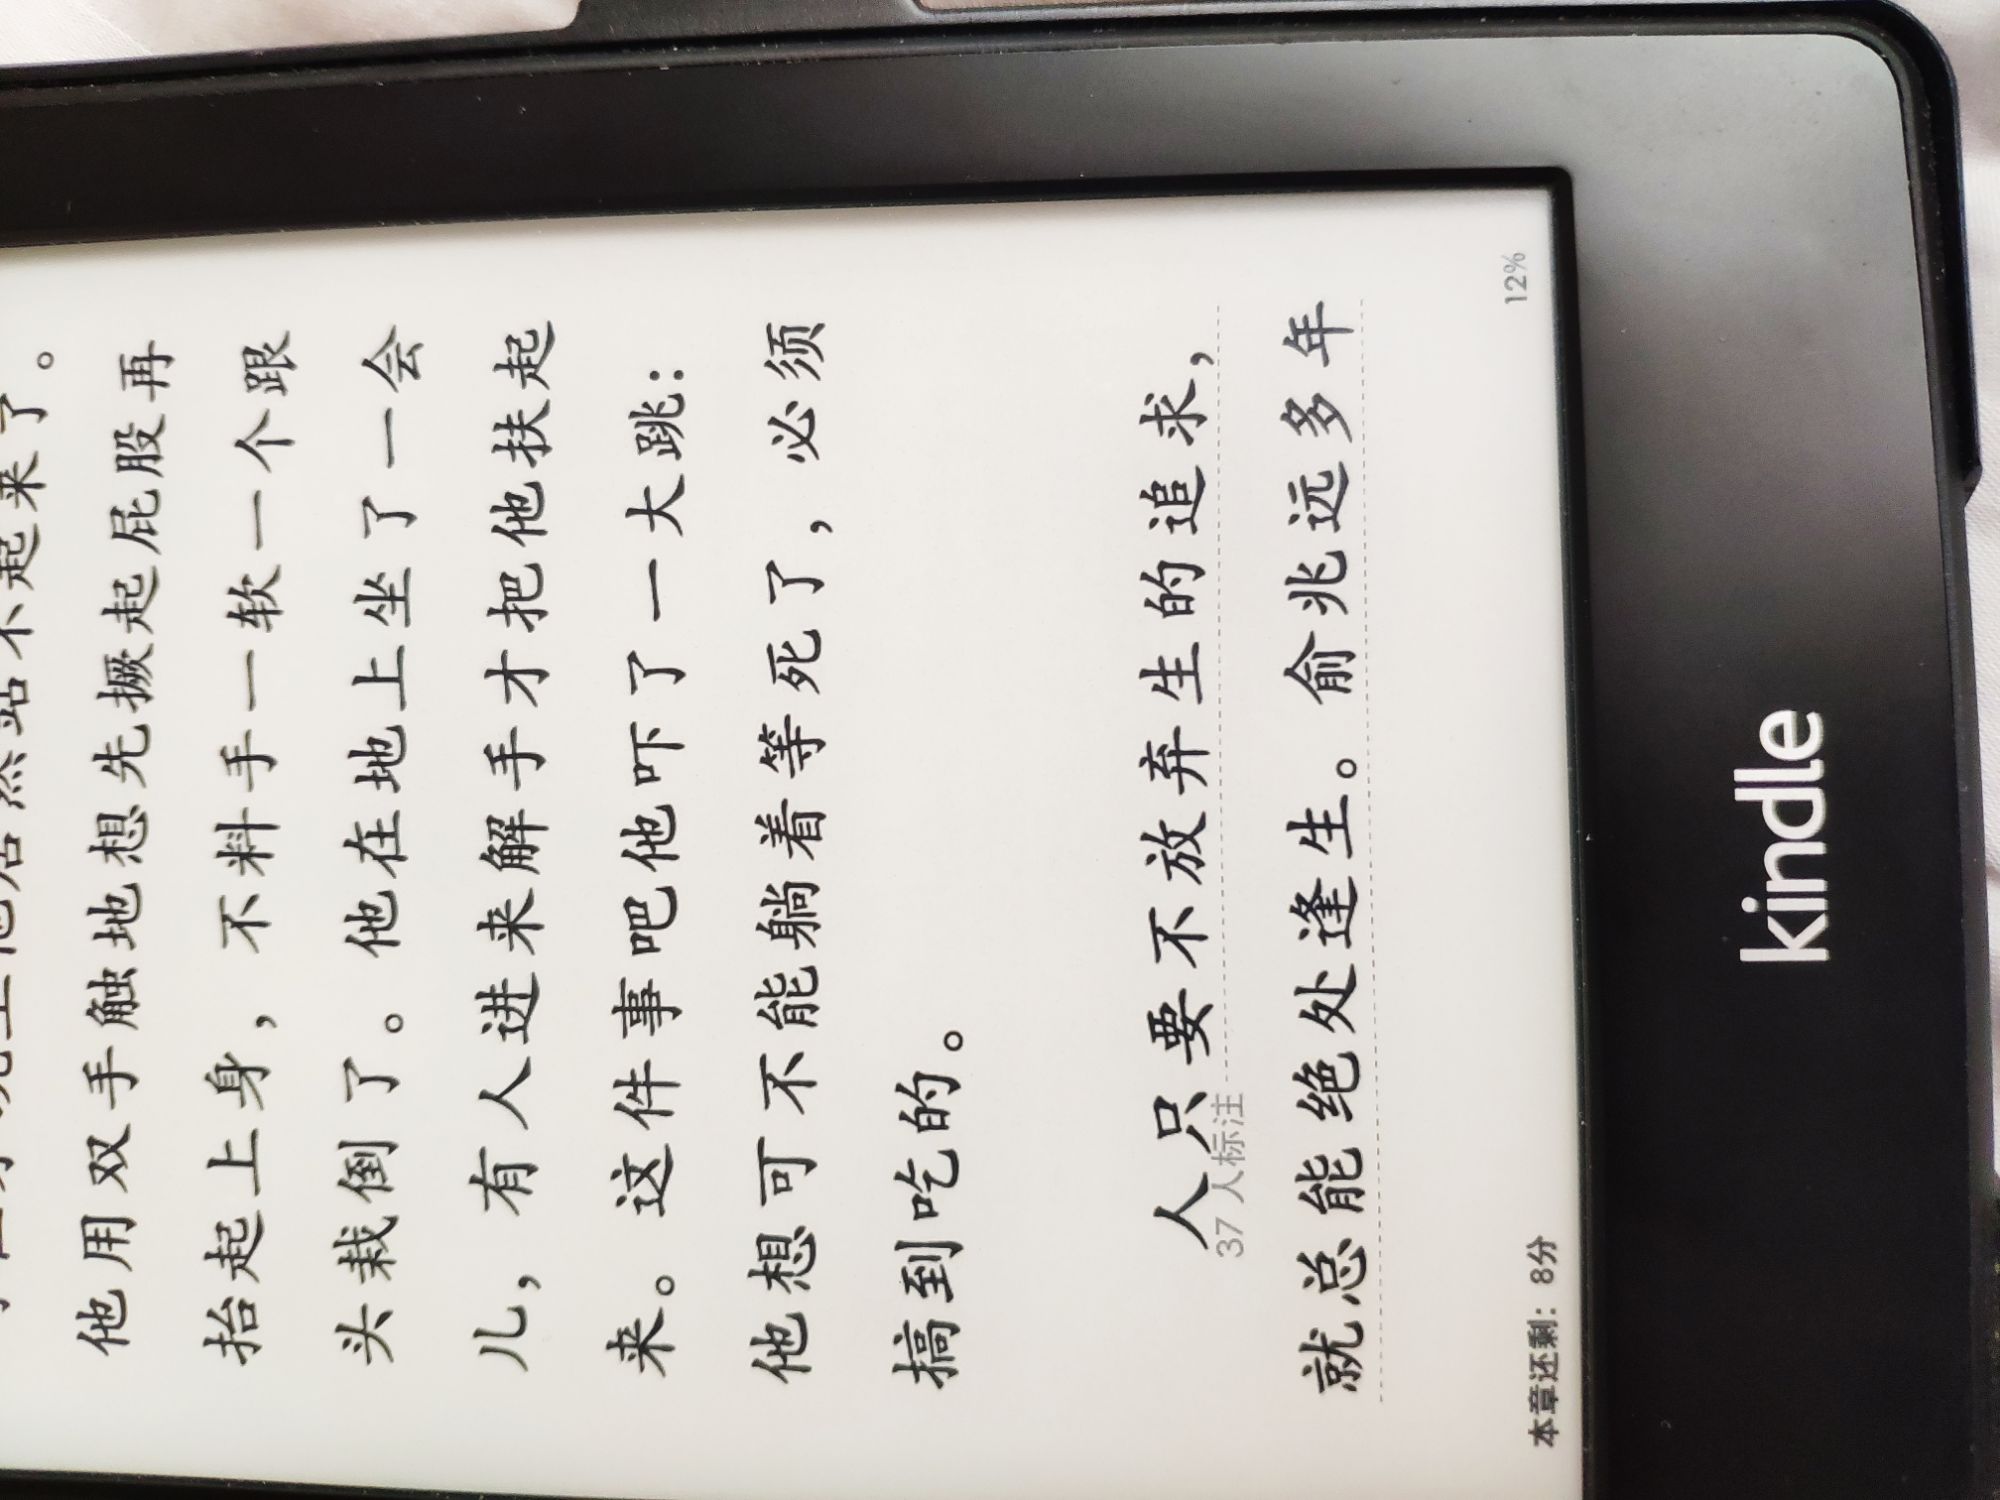 站不起来了。
他用双手触地想先撅起屁股再
抬起上身，不料手一软一个跟
头栽倒了。他在地上坐了一会
儿，有人进来解手才把他扶起
来。这件事吧他吓了一大跳：
他想可不能躺着等死了，必须
搞到吃的。
人只要不放弃生的追求，
37 人标注
就总能绝处逢生。俞兆远多年
本章还剩：8分
12%
kindle